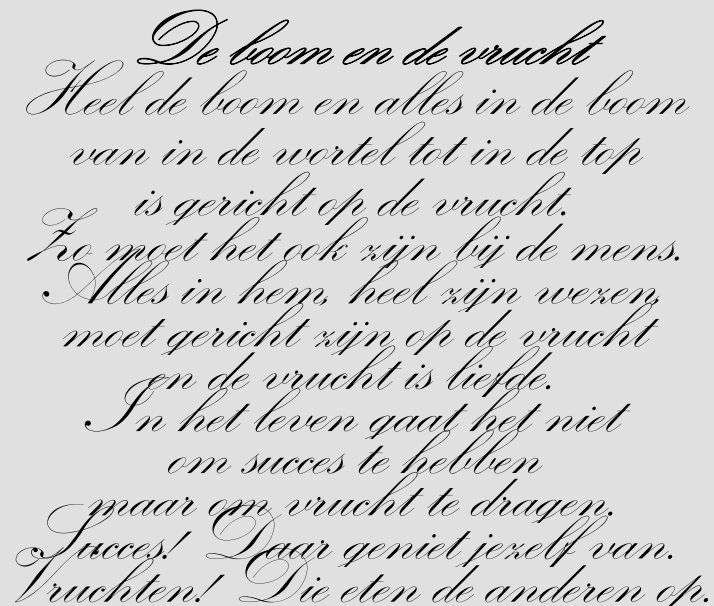 De boom en de vrucht
Heel de boom en alles in de boom
van in de wortel tot in de top
is gericht op de vrucht.
Zo moet het ook zijn bij de mens.
Alles in hem, heel zijn wezen,
moet gericht zijn op de vrucht
en de vrucht is liefde.
In het leven gaat het niet
om succes te hebben
maar om vrucht te dragen.
Succes! Daar geniet jezelf van.
Vruchten! Die eten de anderen op.